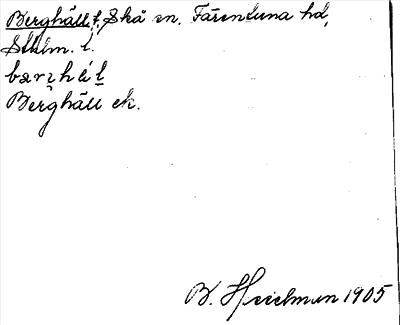 Berghäll, f, Skå sn. Färentuna hd,
Sthlm. l.
Berghäll ek.
B. 1905